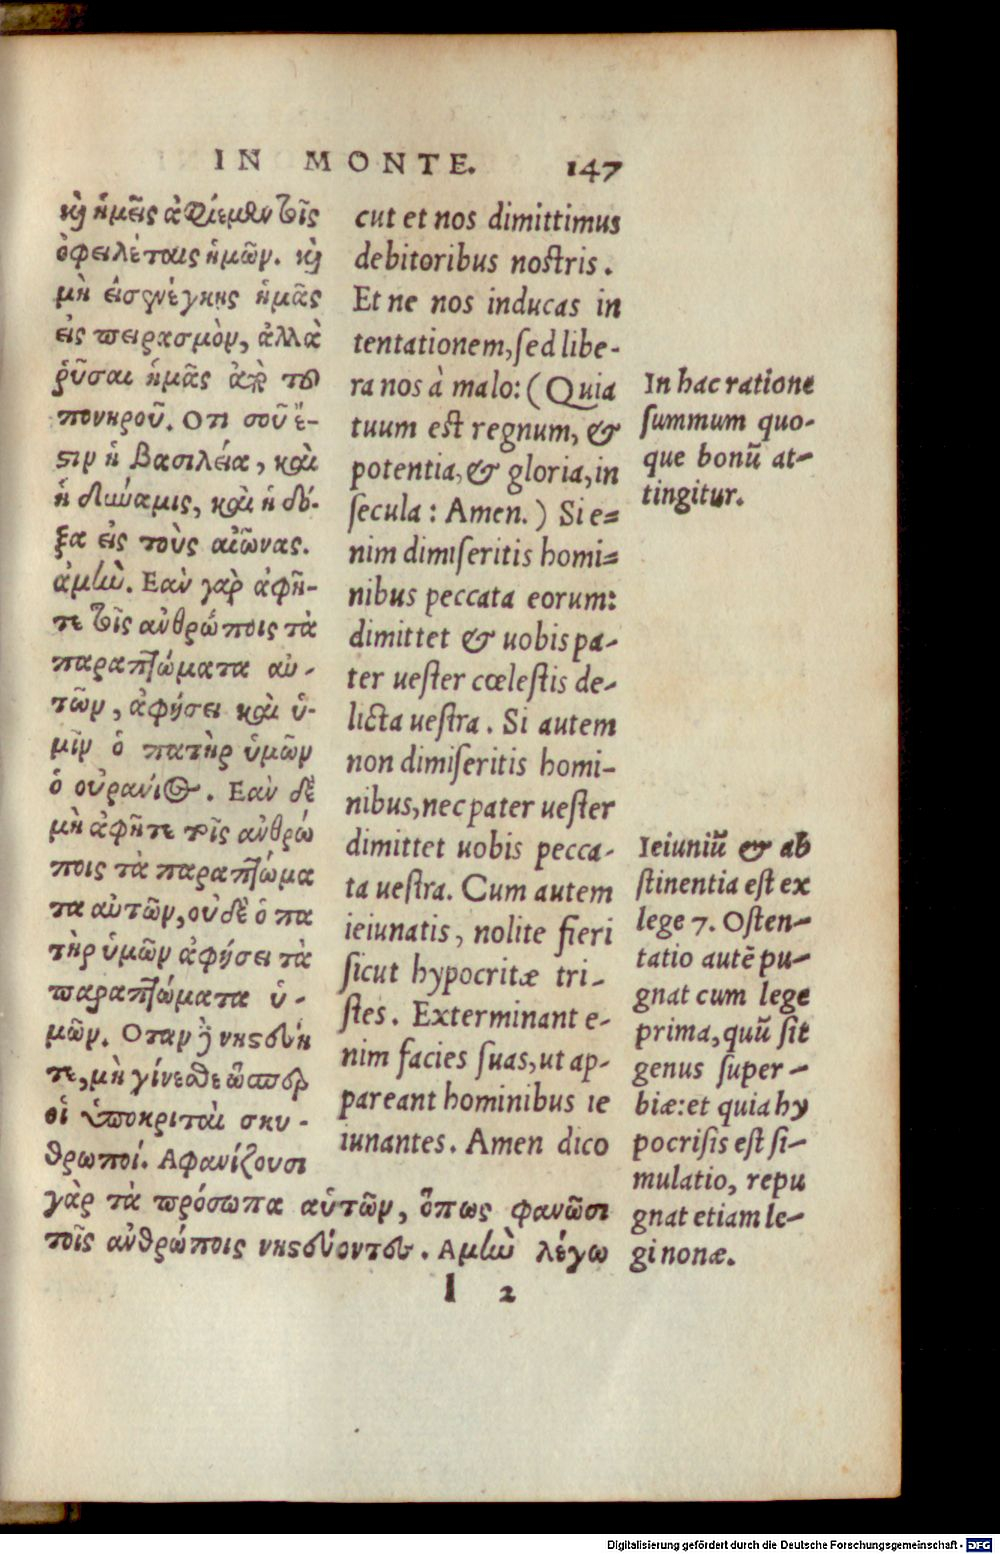 IN MONTE. 147
καὶ ἡμεῖς ἀφίεμεν τοῖς
ὀφειλέταις ἡμῶν. καὶ
μὴ εἰσενέγκης ἡμᾶς
εἰς πειρασμὸν, ἀλλὰ
ῥῦσαι ἡμᾶς ἀπὸ τοῦ
πονηροῦ. Οτι σοῦ ἔ-
στιν ἡ βασιλεία, καὶ
ἡ δύναμις, καὶ ἡ δό-
ξα εἰς τοὺς αἰῶνας.
ἀμὴν. Εὰν γὰρ ἀφῆ-
τε τοῖς ἀνθρώποις τὰ
παραπτώματα αὐ-
τῶν, ἀφήσει καὶ ὑ-
μῖν ὁ πατὴρ ὑμῶν
ὁ οὐράνιος. Εὰν δὲ
μὴ ἀφῆτε τοῖς ἀνθρώ
ποις τὰ παραπτώμα
τα αὐτῶν, οὐδὲ ὁ πα
τὴρ ὑμῶν ἀφήσει τὰ
παραπτώματα ὑ-
μῶν. Οταν δὲ νηστεύη
τε, μὴ γίνεσθε ὥσπερ
οἱ ὑποκριταὶ σκυ-
θρωποί. Αφανίζουσι
γὰρ τὰ πρόσωπα αὑτῶν, ὅπως φανῶσι
τοῖς ἀνθρώποις νηστεύοντες. Αμὴν λέγω
cut et nos dimittimus
debitoribus nostris.
Et ne nos inducas in
tentationem, sed libe-
ra nos à malo: (Quia
tuum est regnum, &
potentia, & gloria, in
secula: Amen.) Si e=
nim dimiseritis homi=
nibus peccata eorum:
dimittet & uobis pa-
ter uester cœlestis de-
licta uestra. Si autem
non dimiseritis homi-
nibus, nec pater uester
dimittet uobis pecca-
ta uestra. Cum autem
ieiunatis, nolite fieri
sicut hypocritæ tri-
stes. Exterminant e-
nim facies suas, ut ap-
pareant hominibus ie
iunantes. Amen dico
In hac ratione
summum quo-
que bonū at-
tingitur.
Ieiuniū & ab
stinentia est ex
lege 7. Osten-
tatio autē pu-
gnat cum lege
prima, quū sit
genus super-
biæ: et quia hy
pocrisis est si-
mulatio, repu
gnat etiam le-
gi nonæ.
I 2
Digitalisierung gefördert durch die Deutsche Forschungsgemeinschaft - DFG